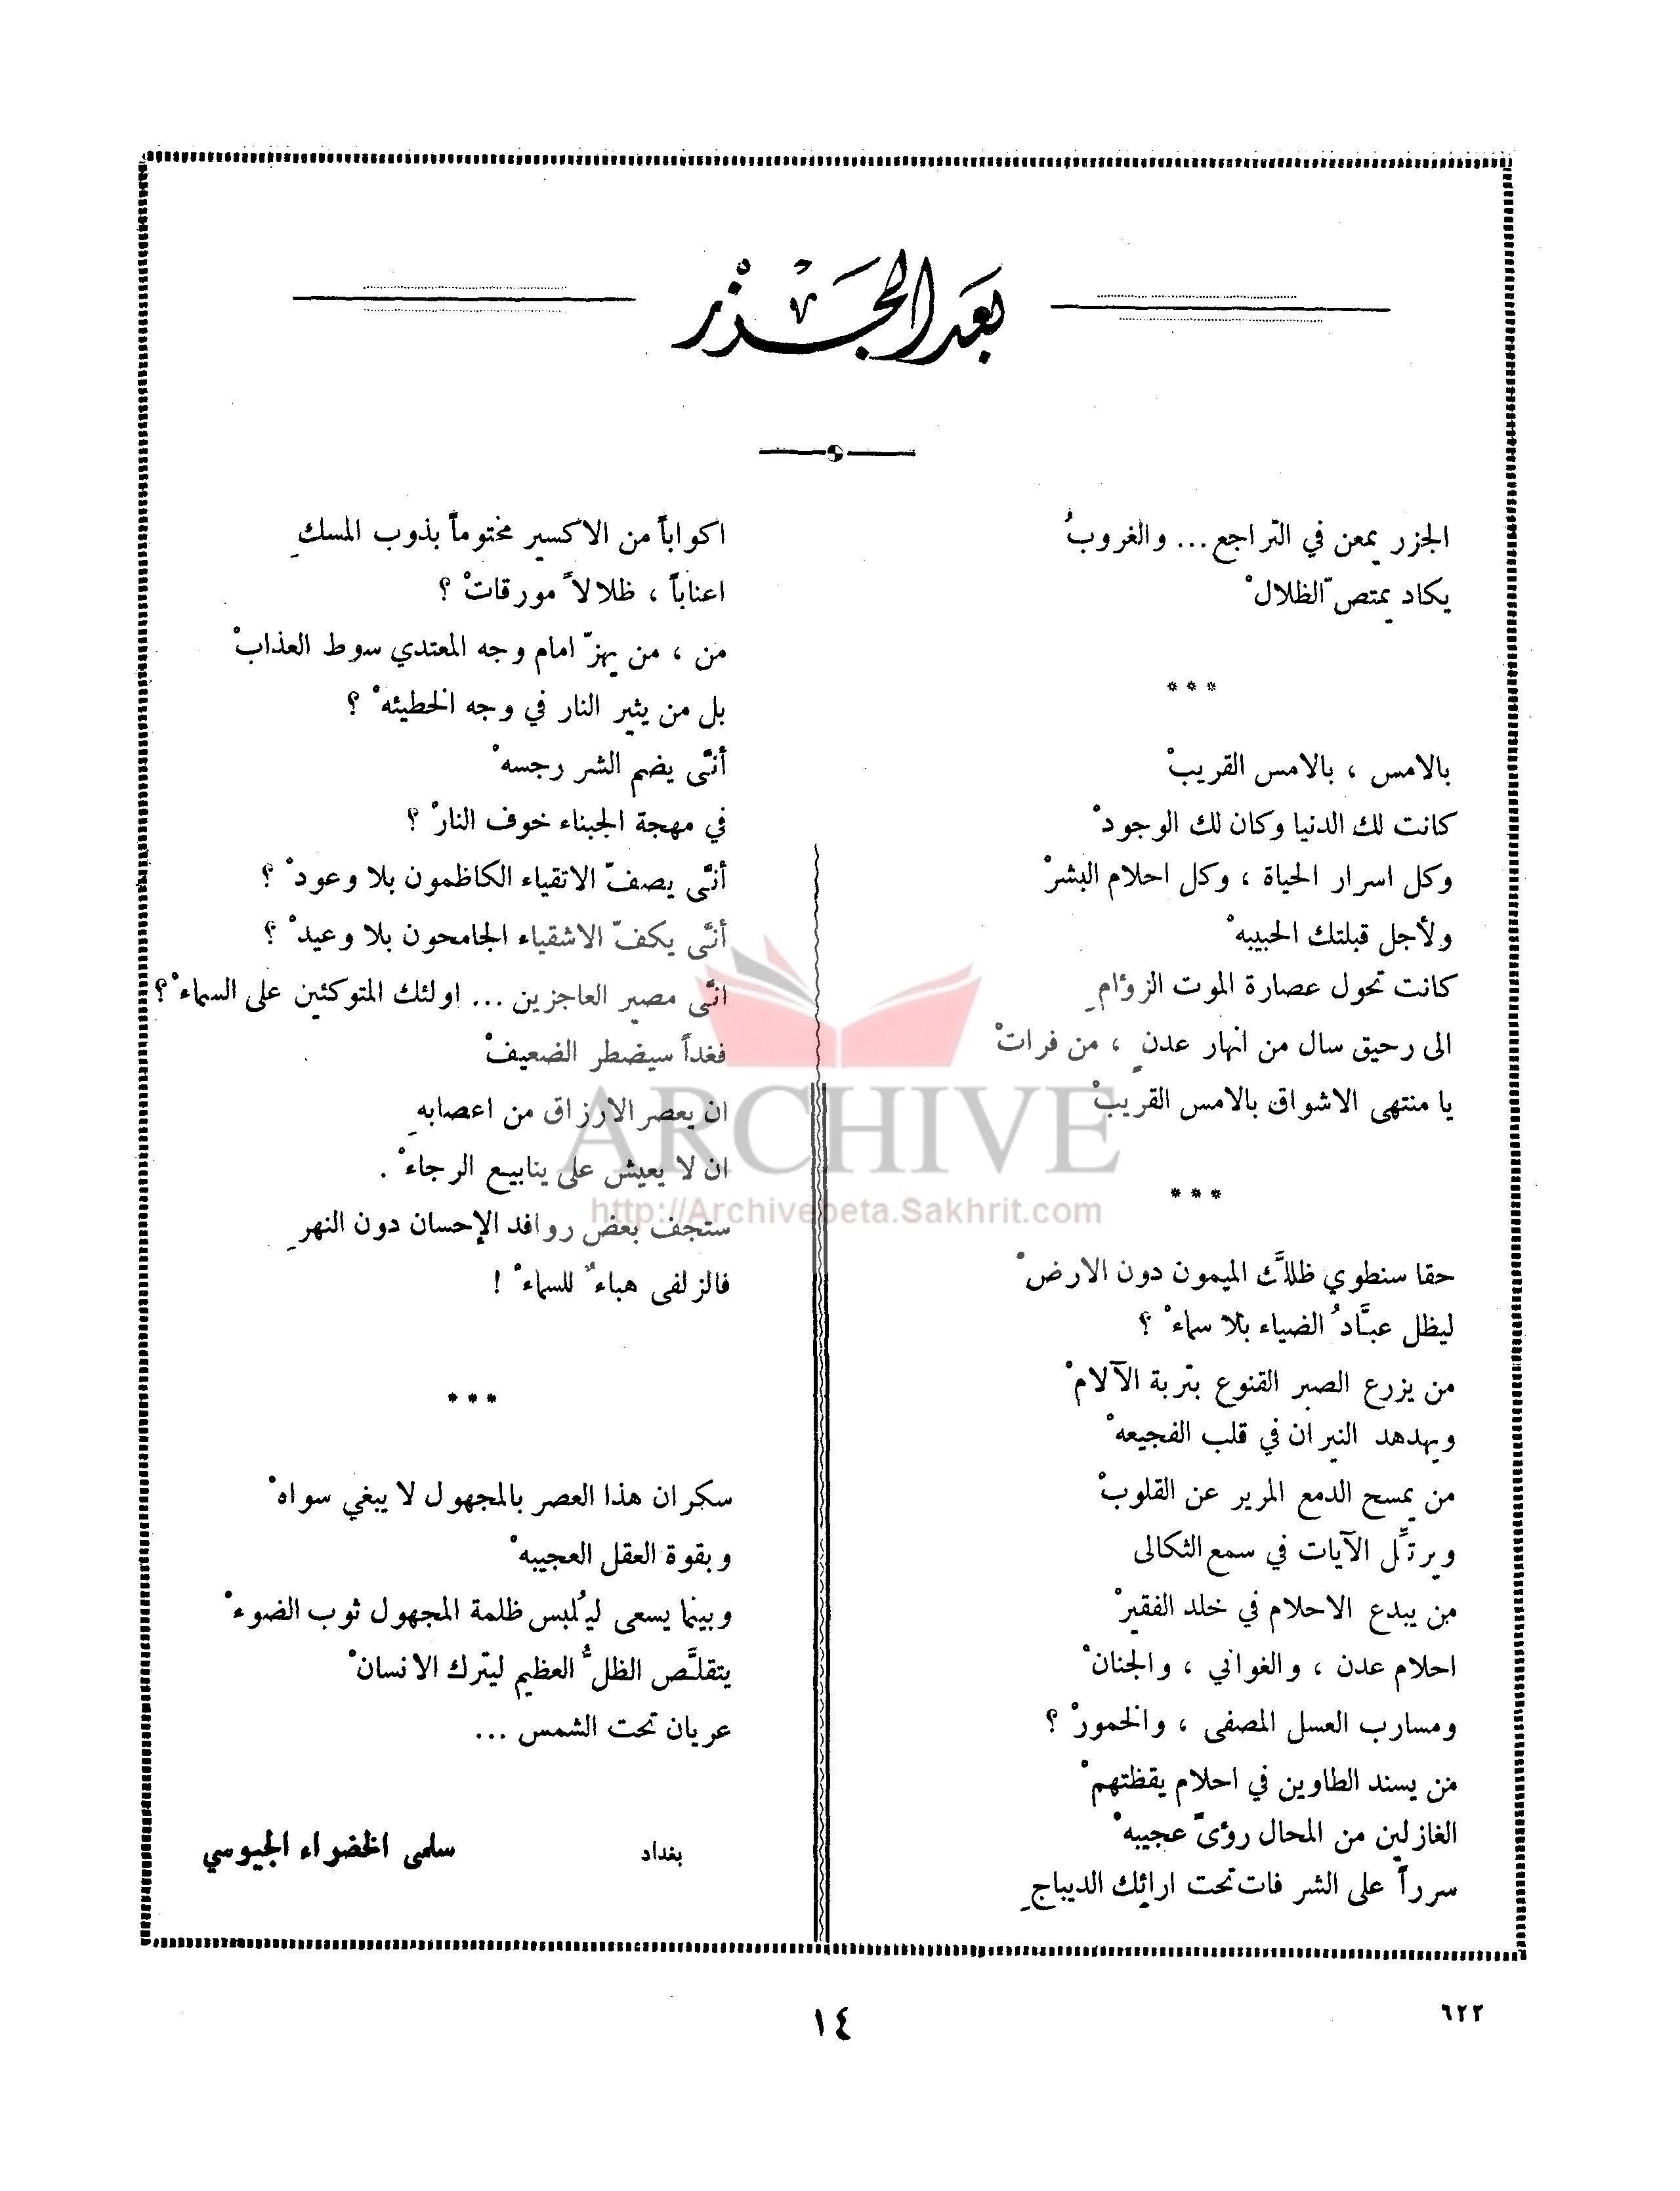 بعد الجَزْر
الجزر يمعن في التراجع ... والغروبُ
يكاد يمتصّ الظلالْ
***
بالامس ، بالامس القريبْ
كانت لك الدنيا وكان لك الوجودْ
وكل اسرار الحياة ، وكل احلام البشرْ
ولأجل قبلتك الحبيبهْ
كانت تحول عصارة الموت الزؤامِ
الى رحيق سال من انهار عدنٍ ، من فراتْ
يا منتهى الاشواق بالامس القريبْ
***
حقا سنطوي ظلَّك الميمون دون الارضْ
ليظل عبَّادُ الضياء بلا سماءْ ؟
من يزرع الصبر القنوع بتربة الآلامْ
ويهدهد النيران في قلب الفجيعهْ
من يمسح الدمع المرير عن القلوبْ
ويرتِّل الآيات في سمع الثكالى
من يبدع الاحلام في خلد الفقيرْ
احلام عدن ، والغواني ، والجنانْ
ومسارب العسل المصفى ، والخمورْ ؟
من يسند الطاوين في احلام يقظتهمْ
الغازلين من المحال رؤىً عجيبهْ
سرراً على الشرفات تحت ارائك الديباجِ
اكواباً من الاكسير مختوماً بذوب المسكِ
اعناباً ، ظلالاً مورقاتْ ؟
من ، من يهزّ امام وجه المعتدي سوط العذابْ
بل من يثير النار في وجه الخطيئهْ ؟
أنَّى يضم الشر رجسهْ
في مهجة الجبناء خوف النارْ ؟
أنَّى يصفّ الاتقياء الكاظمون بلا وعودْ ؟
أنَّى يكفّ الاشقياء الجامحون بلا وعيدْ ؟
انَّى مصير العاجزين ... اولئك المتوكئين على السماءْ ؟
فغداً سيضطر الضعيفْ
ان يعصر الارزاق من اعصابهِ
ان لا يعيش على ينابيع الرجاءْ .
ستجف بعض روافد الإحسان دون النهرِ
فالزلفى هباءٌ للسماءْ !
***
سكران هذا العصر بالمجهول لا يبغي سواهْ
وبقوة العقل العجيبهْ
وبينما يسعى ليُلبس ظلمة المجهول ثوب الضوءْ
يتقلَّص الظلُّ العظيم ليترك الانسانْ
عريان تحت الشمس ...
بغداد سلمى الخضراء الجيوسي
ARCHIVE
http://Archivebeta.Sakhrit.com
٦٢٢
١٤